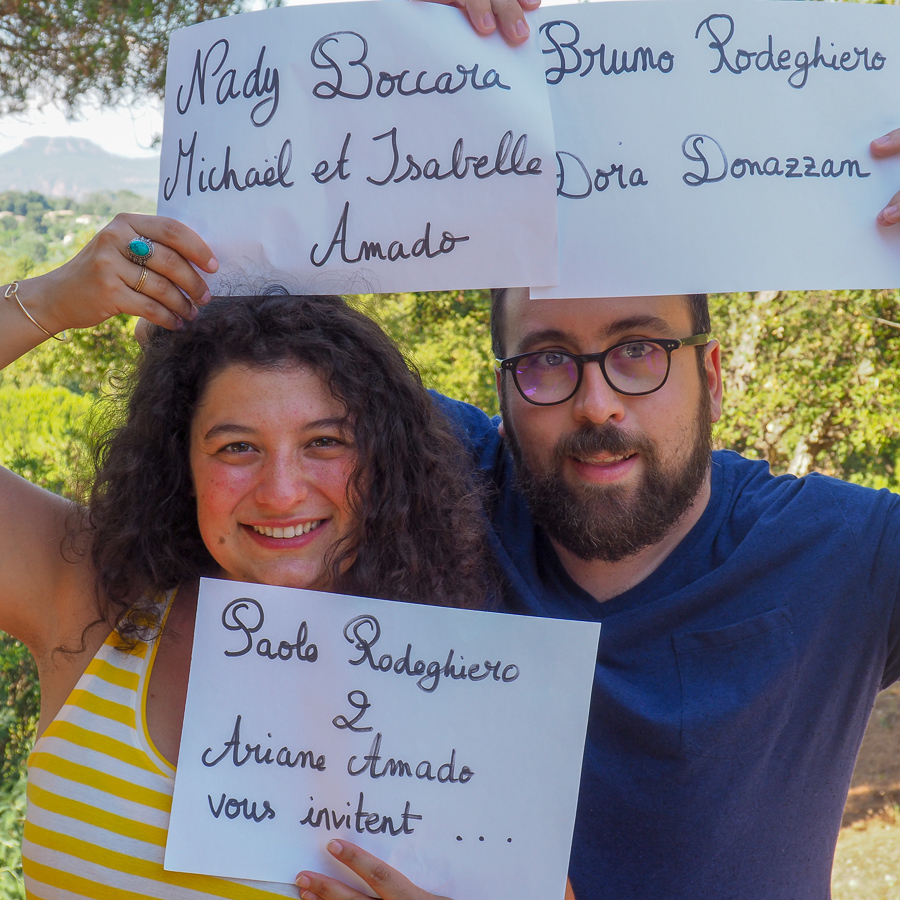 Nady Boccara
Michaël et Isabelle
Amado
Bruno Rodeghiero
Dora Donazzan
Paolo Rodeghiero
&
Ariane Amado
vous invitent ...